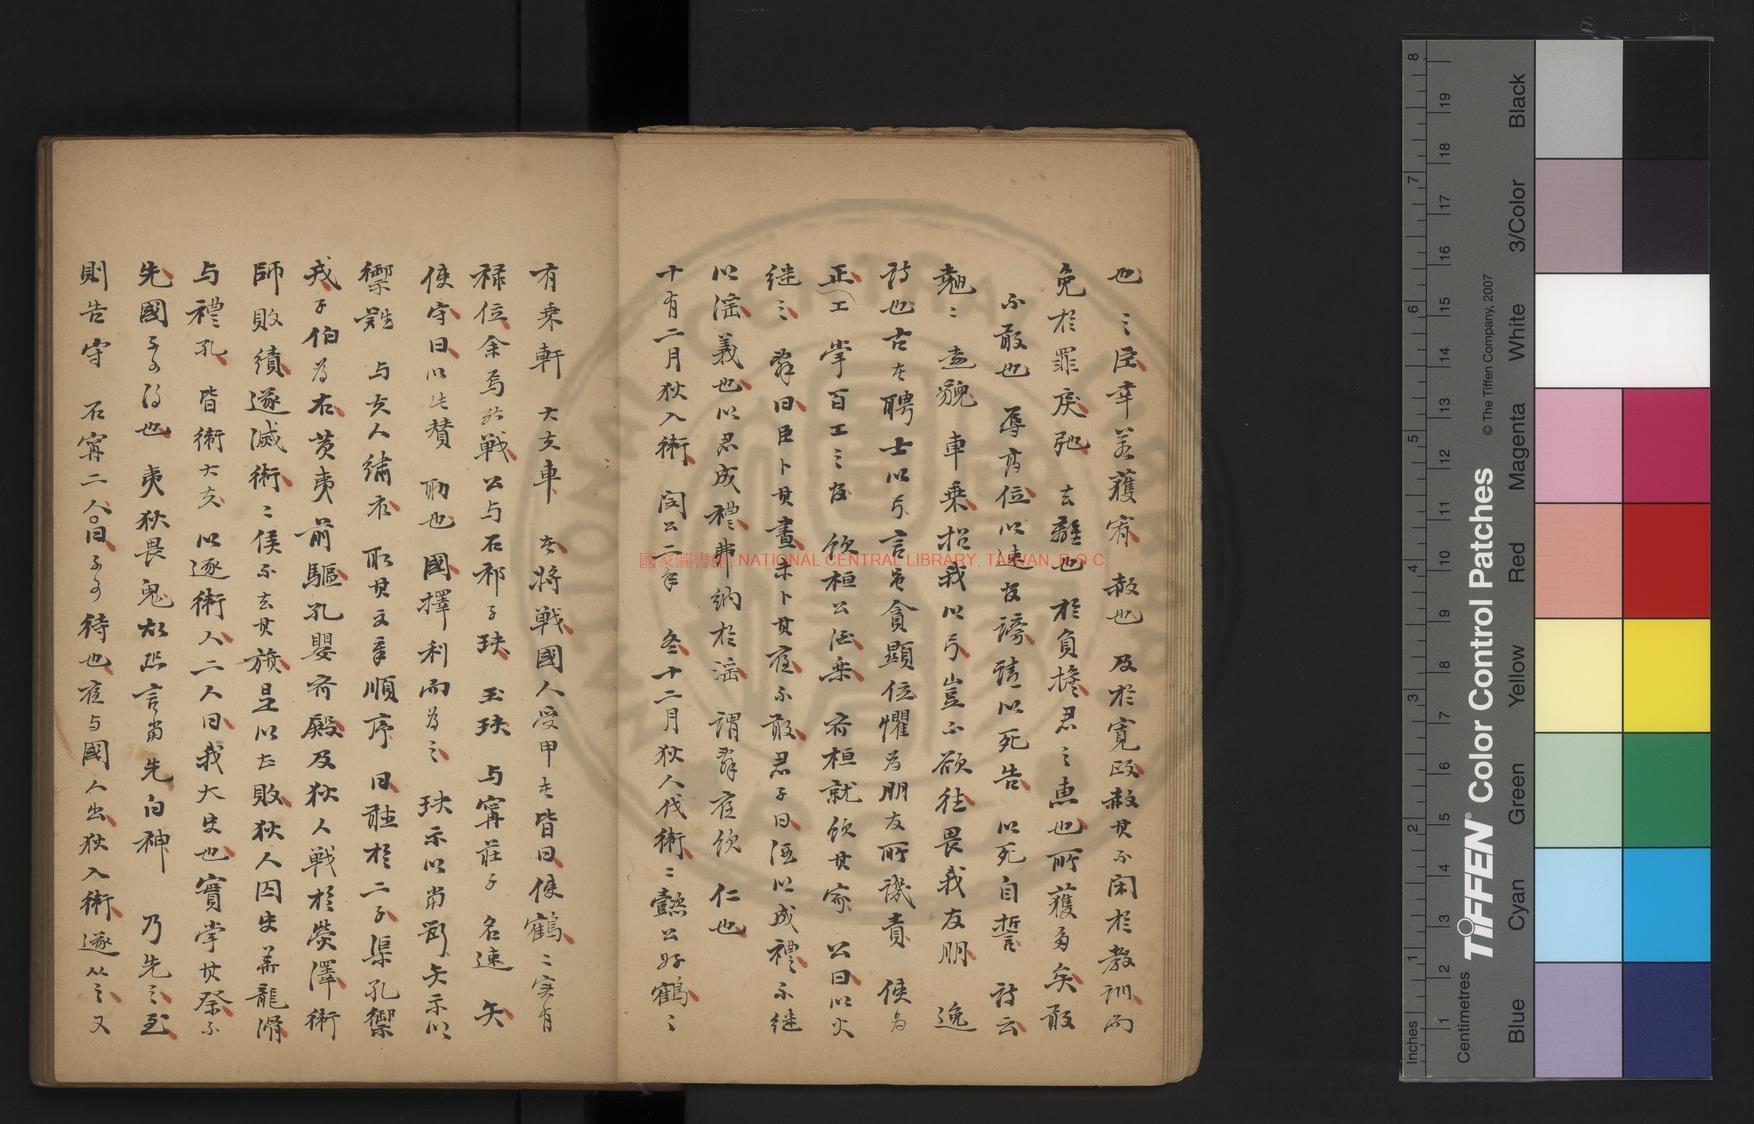 也〻臣幸若獲宥赦也及於寬政赦其不閑於教訓而
免於罪戾弛去離也於負擔君之惠也所獲多矣敢
不敢也辱高位以速官謗請以死告以死自誓詩云
翹〻遠貌車乘招我以弓豈不欲往畏我友朋逸
詩也古者聘士以弓言貪顯位懼為朋友所譏責使為
正工掌百工之官飲桓公酒樂齊桓就飲其家公曰以火
継之辭曰臣卜其晝未卜其夜不敢君子曰酒以成禮不継
以淫義也以君成禮弗納於淫謂辭夜飲仁也
十有二月狄入衛閔公二年冬十二月狄人伐衛〻懿公好鶴〻
有乘軒大夫車者將戰國人受甲者皆曰使鶴〻実有
禄位余焉能戰公与石祁子玦玉玦与寗莊子名速矢
使守曰以此贊助也國擇利而為之玦示以當斷矢示以
禦難与夫人繡衣取其文章順序曰聴於二子渠孔禦
戎子伯為右黃夷前驅孔嬰齊殿及狄人戰於熒澤衛
師敗績遂滅衛〻侯不去其旗是以甚敗狄人囚史華龍滑
与禮孔皆衛大夫以逐衛人二人曰我大史也實掌其祭不
先國不可得也夷狄畏鬼故恐言當先白神乃先之至
則告守石寗二人曰不可待也夜与國人出狄入衛遂從之又
國家圖書館, NATIONAL CENTRAL LIBRARY, TAIWAN, R.O.C
Inches
Centimetres
TIFFEN® Color Control Patches
© The Tiffen Company, 2007
Blue Cyan Green Yellow Red Magenta White 3/Color Black